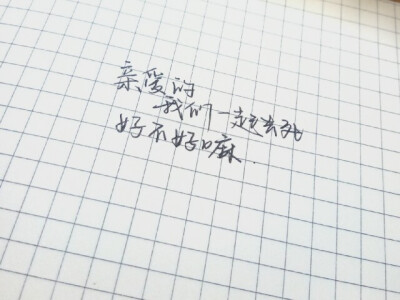 亲爱的
我们一起去死
好不好嘛.